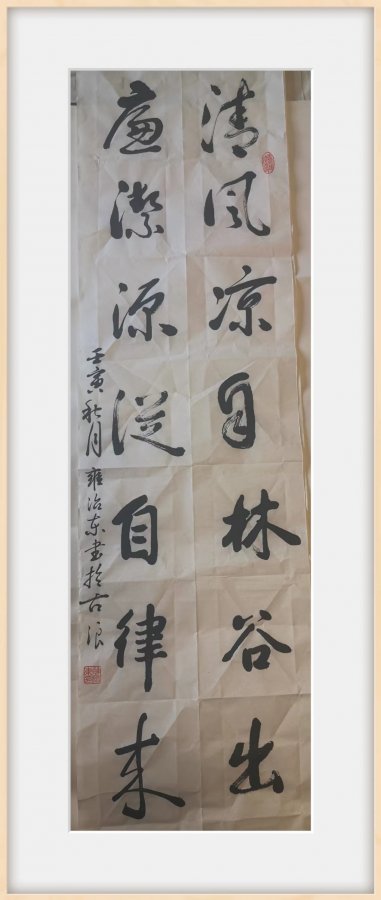 清风凉自林谷出
廉潔源従自律来
壬寅秋月雍治东书於古浪